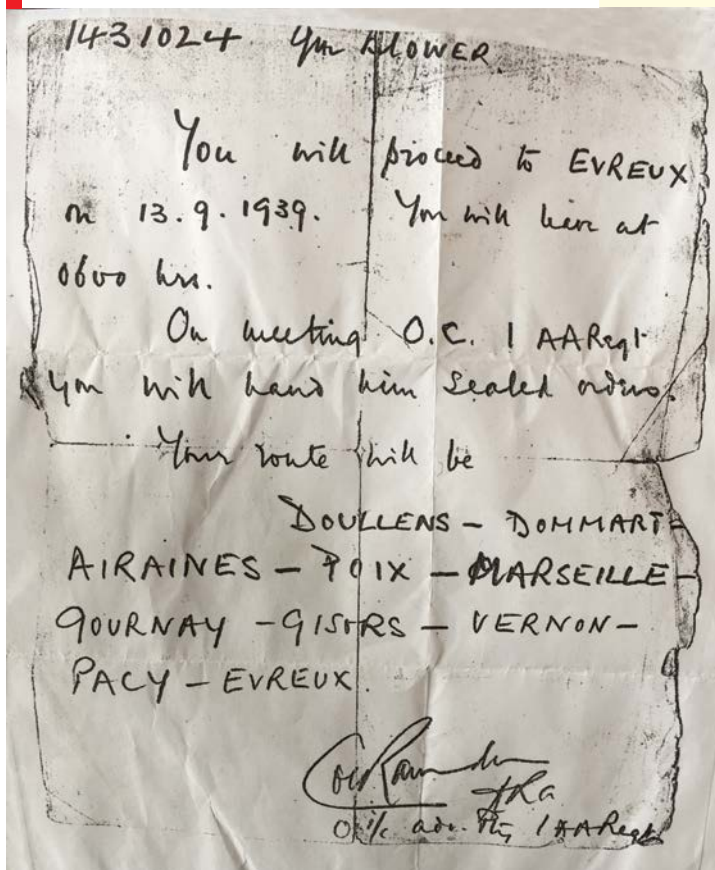 1431024 Gnr KLOWER
You will proceed to EVREUX
on 13.9.1939. You will leave at
0600 hrs.
On meeting O.C. 1 AARegt
you will hand him sealed orders.
Your route will be
DOULLENS - DOMMART -
AIRAINES - POIX - MARSEILLE -
GOURNAY - GISORS - VERNON -
PACY - EVREUX.
RA
O i/c adv. Pty 1 AARegt